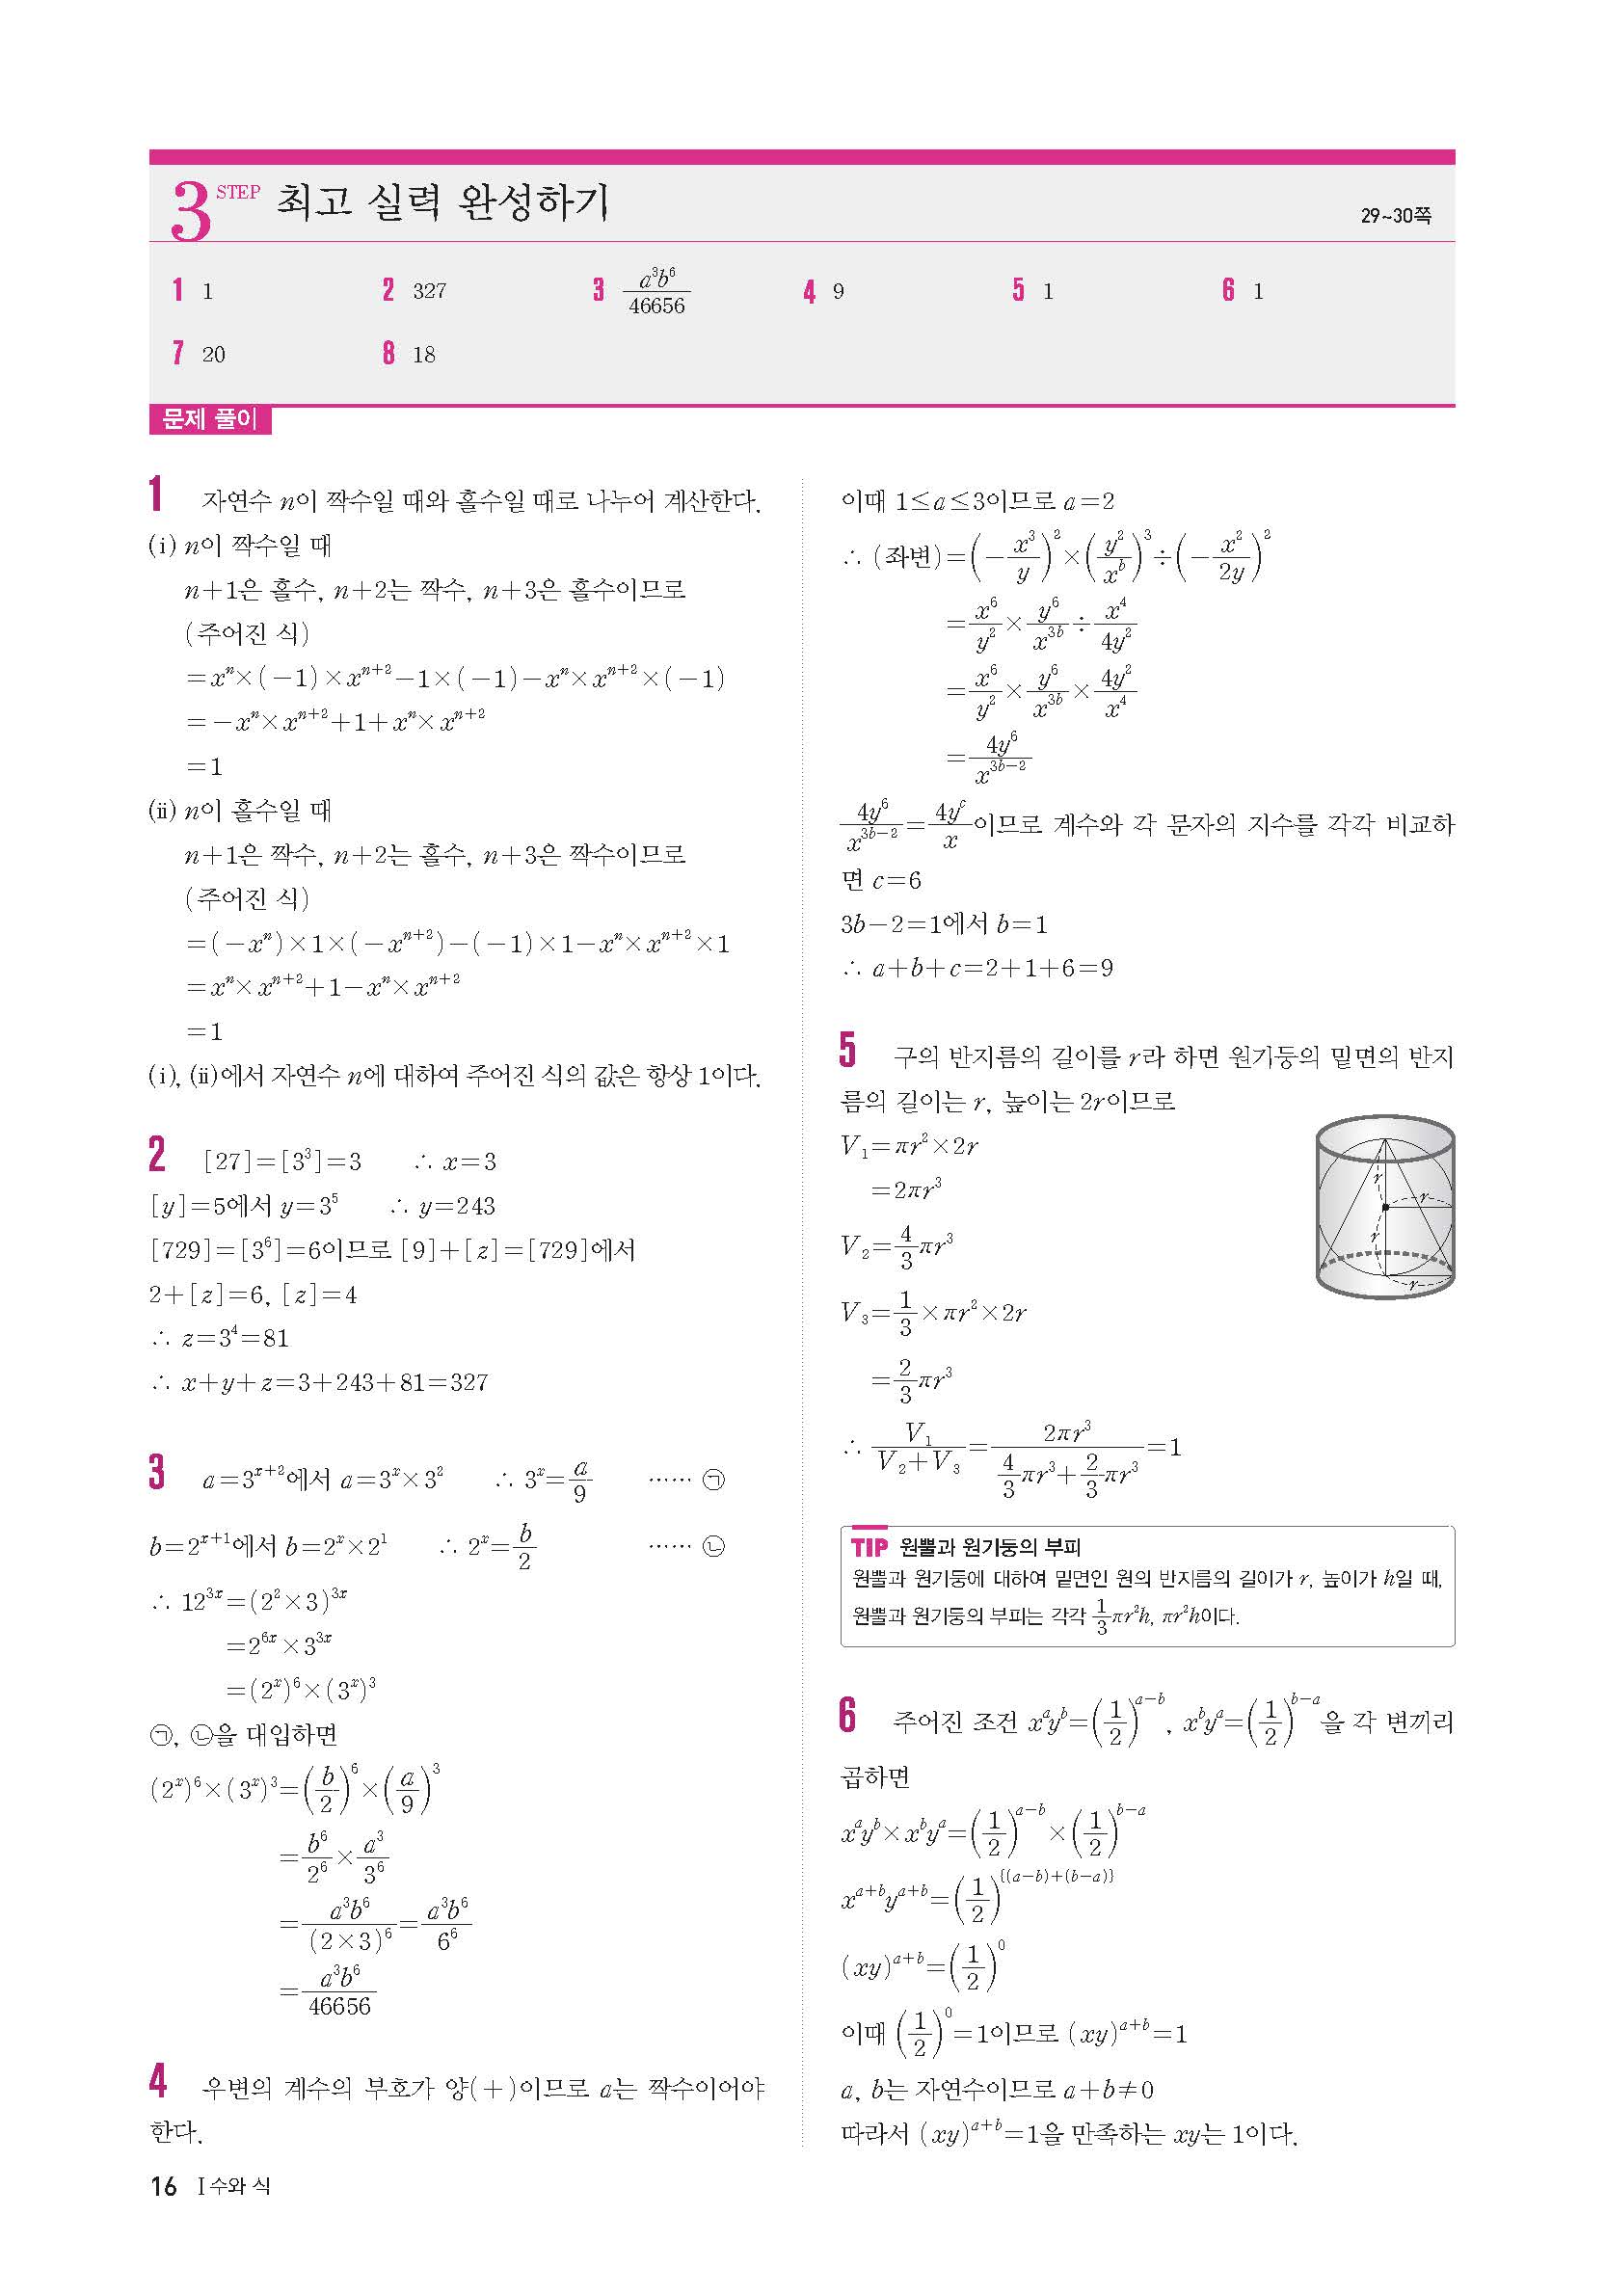 3 STEP 최고 실력 완성하기
29~30쪽
1 1 2 327 3 a³b⁶/46656 4 9 5 1 6 1
7 20 8 18
문제 풀이
1 자연수 n이 짝수일 때와 홀수일 때로 나누어 계산한다.
(ⅰ) n이 짝수일 때
n+1은 홀수, n+2는 짝수, n+3은 홀수이므로
(주어진 식)
=xⁿ×(-1)×xⁿ⁺²-1×(-1)-xⁿ×xⁿ⁺²×(-1)
=-xⁿ×xⁿ⁺²+1+xⁿ×xⁿ⁺²
=1
(ⅱ) n이 홀수일 때
n+1은 짝수, n+2는 홀수, n+3은 짝수이므로
(주어진 식)
=(-xⁿ)×1×(-xⁿ⁺²)-(-1)×1-xⁿ×xⁿ⁺²×1
=xⁿ×xⁿ⁺²+1-xⁿ×xⁿ⁺²
=1
(ⅰ), (ⅱ)에서 자연수 n에 대하여 주어진 식의 값은 항상 1이다.
2 [27]=[3³]=3 ∴ x=3
[y]=5에서 y=3⁵ ∴ y=243
[729]=[3⁶]=6이므로 [9]+[z]=[729]에서
2+[z]=6, [z]=4
∴ z=3⁴=81
∴ x+y+z=3+243+81=327
3 a=3^(x+2)에서 a=3^x×3² ∴ 3^x=a/9 …… ㉠
b=2^(x+1)에서 b=2^x×2¹ ∴ 2^x=b/2 …… ㉡
∴ 12^(3x)=(2²×3)^(3x)
=2^(6x)×3^(3x)
=(2^x)⁶×(3^x)³
㉠, ㉡을 대입하면
(2^x)⁶×(3^x)³=(b/2)⁶×(a/9)³
=b⁶/2⁶×a³/3⁶
=a³b⁶/(2×3)⁶=a³b⁶/6⁶
=a³b⁶/46656
4 우변의 계수의 부호가 양(+)이므로 a는 짝수이어야
한다.
이때 1≤a≤3이므로 a=2
∴ (좌변)=(-x³/y)²×(y²/x^b)³÷(-x²/2y)²
=x⁶/y²×y⁶/x^(3b)÷x⁴/4y²
=x⁶/y²×y⁶/x^(3b)×4y²/x⁴
=4y⁶/x^(3b-2)
4y⁶/x^(3b-2)=4y^c/x이므로 계수와 각 문자의 지수를 각각 비교하
면 c=6
3b-2=1에서 b=1
∴ a+b+c=2+1+6=9
5 구의 반지름의 길이를 r라 하면 원기둥의 밑면의 반지
름의 길이는 r, 높이는 2r이므로
V₁=πr²×2r
=2πr³
V₂=4/3πr³
V₃=1/3×πr²×2r
=2/3πr³
r
r
r
r
∴ V₁/(V₂+V₃)=2πr³/(4/3πr³+2/3πr³)=1
TIP 원뿔과 원기둥의 부피
원뿔과 원기둥에 대하여 밑면인 원의 반지름의 길이가 r, 높이가 h일 때,
원뿔과 원기둥의 부피는 각각 1/3πr²h, πr²h이다.
6 주어진 조건 x^a y^b=(1/2)^(a-b), x^b y^a=(1/2)^(b-a)을 각 변끼리
곱하면
x^a y^b×x^b y^a=(1/2)^(a-b)×(1/2)^(b-a)
x^(a+b)y^(a+b)=(1/2)^{(a-b)+(b-a)}
(xy)^(a+b)=(1/2)⁰
이때 (1/2)⁰=1이므로 (xy)^(a+b)=1
a, b는 자연수이므로 a+b≠0
따라서 (xy)^(a+b)=1을 만족하는 xy는 1이다.
16 Ⅰ 수와 식